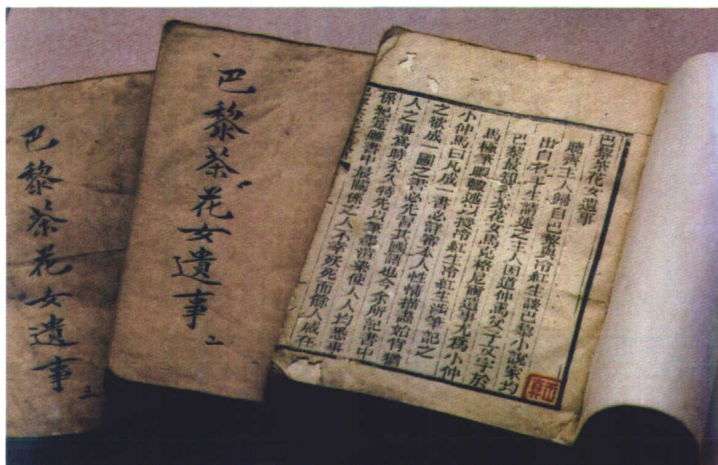 巴黎茶花女遺事
三
巴黎茶花女遺事
二
巴黎茶花女遺事
曉齋主人歸自巴黎與冷紅生談巴黎小說家均
出自名手生請述之主人因道仲馬父子文字於
巴黎最知名茶花女馬克格尼爾遺事尤爲小仲
馬極筆暇輒述以授冷紅生冷紅生涉筆記之
小仲馬曰凡成一書必詳審本人性情描畫始肖猶
之欲成一國之書必先習其國語也今余所記書中
人之事爲時未久特先以筆墨渲染使人人均悉事
係紀實雖書中最關係之人不幸夭死而餘人咸在